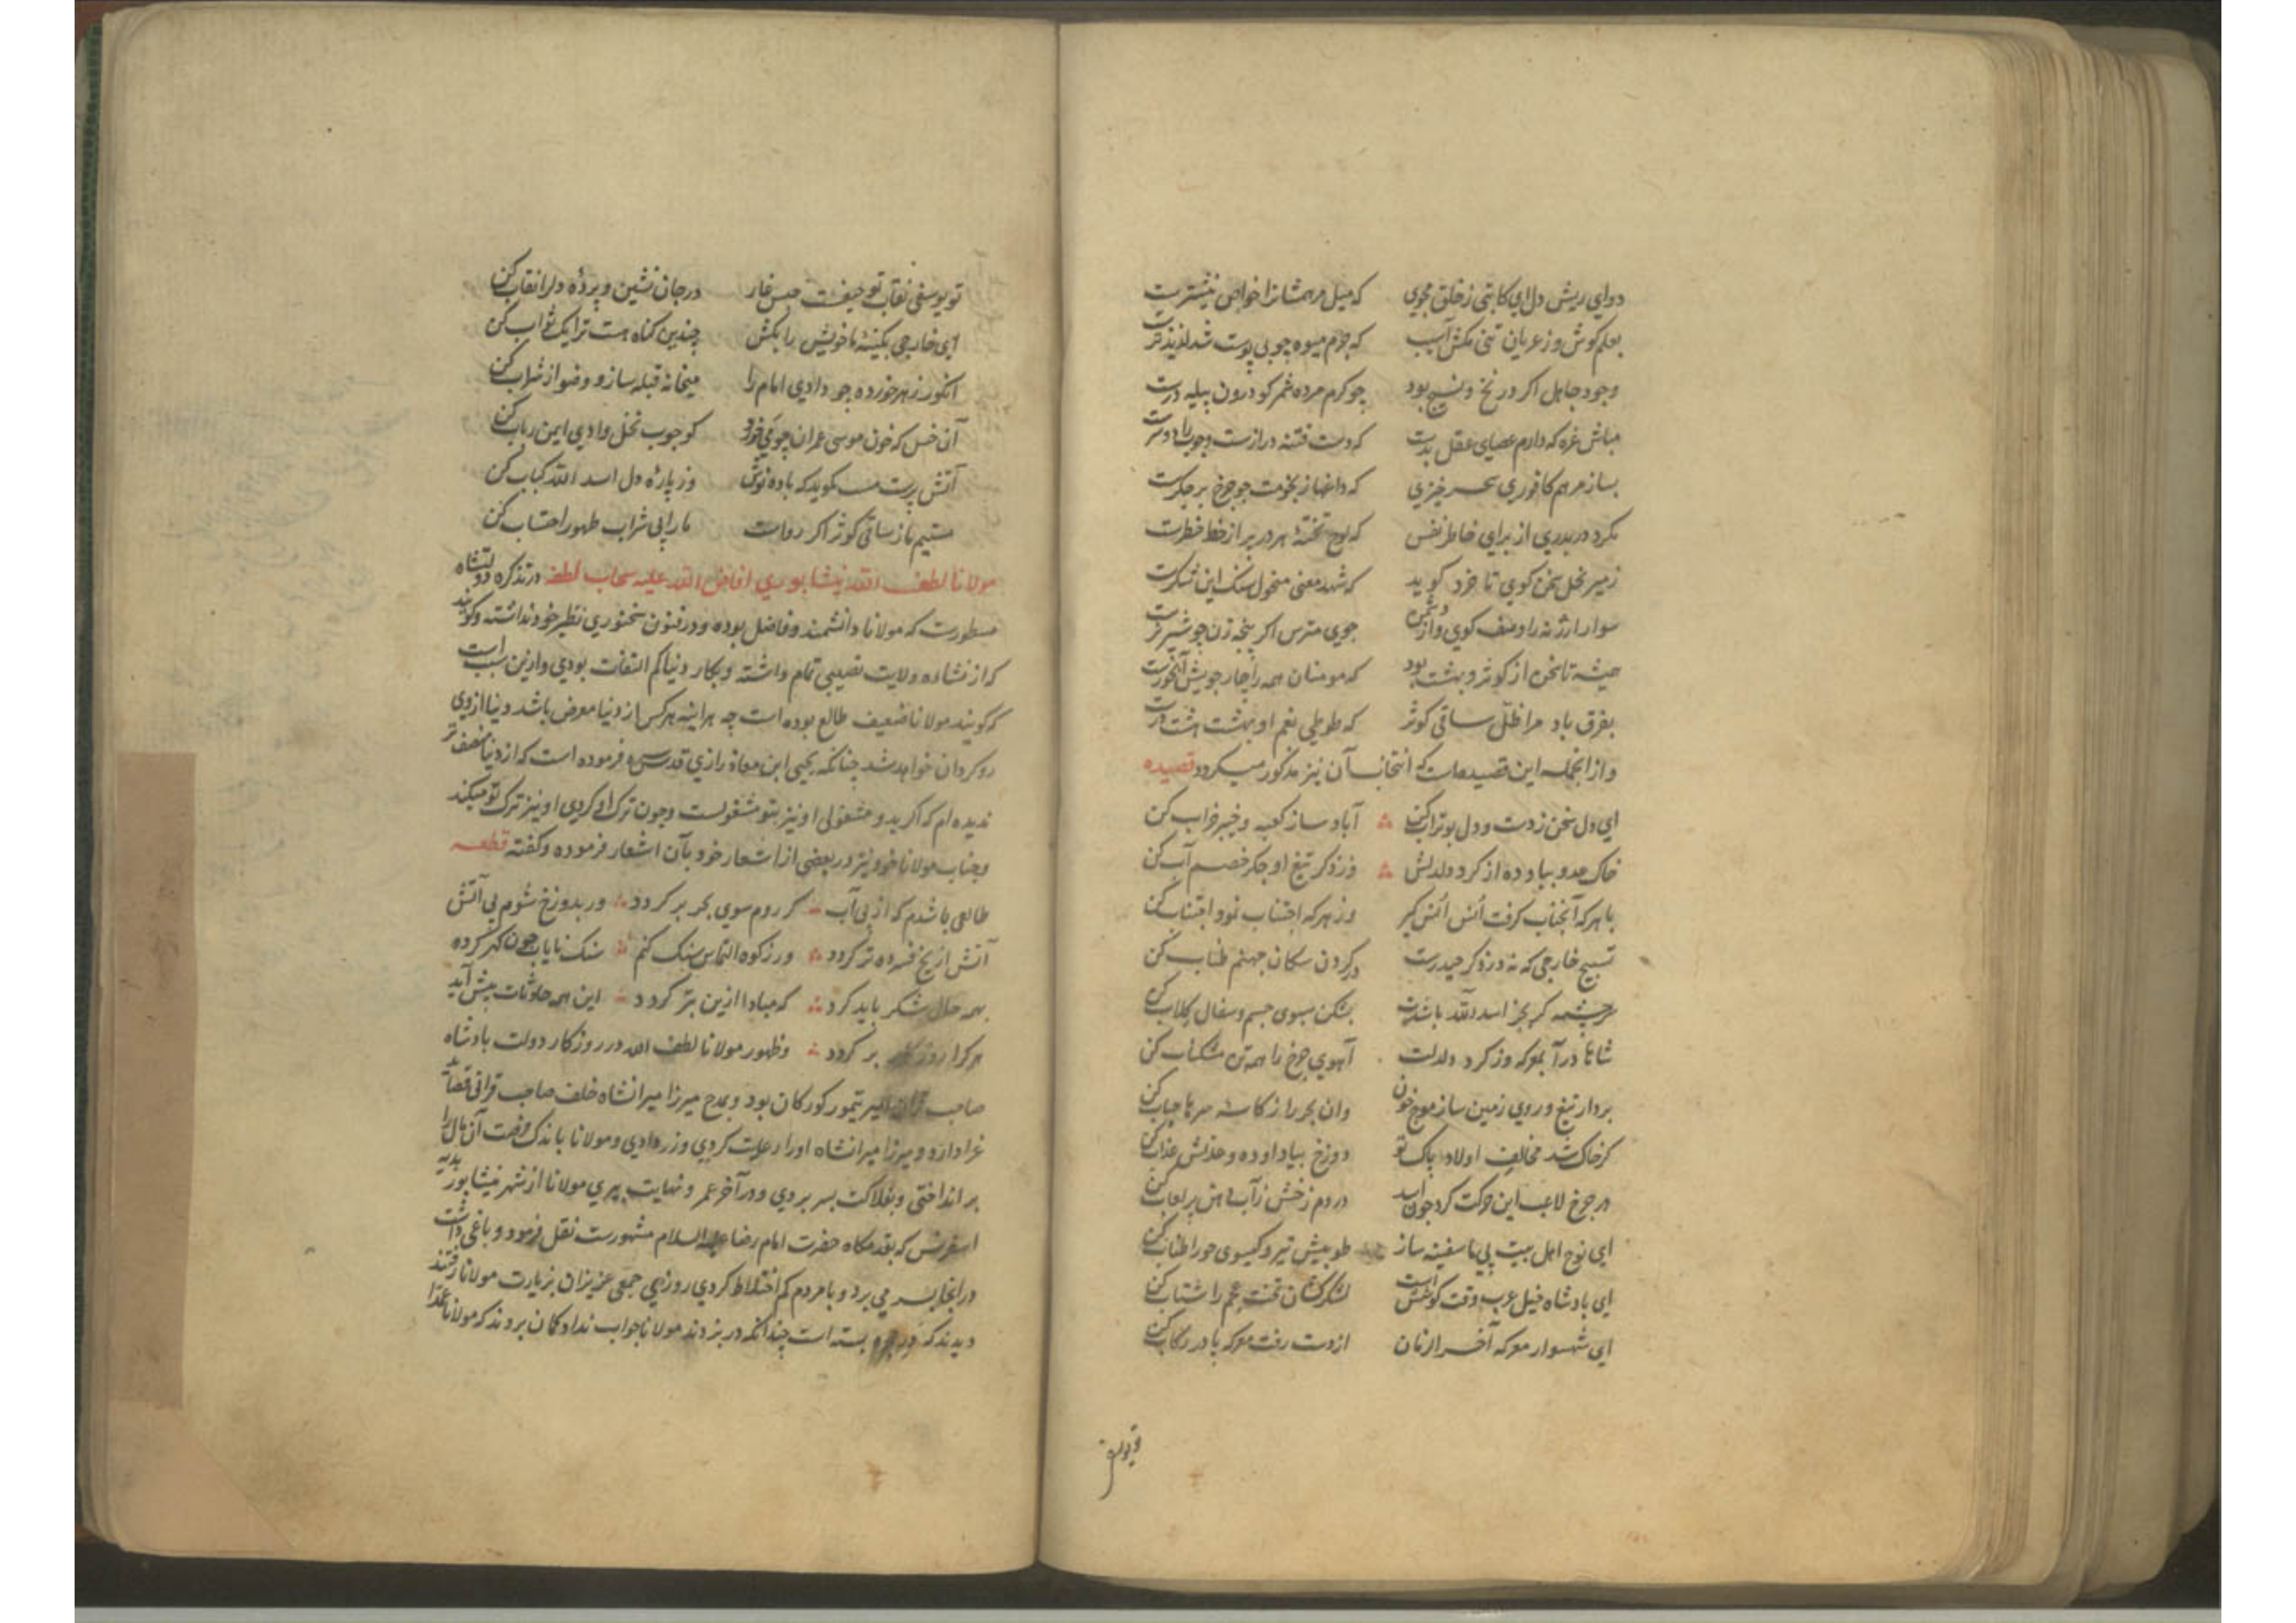 دوای ریش دل ای کاتبی ز خلق مجوی که میل مرهمشانرا خواص نیشترست
بعلم کوش و ز عریان تنی مکش آسیب که جرم میوه چو بی پوست شد لذیذترست
وجود جاهل اکر در نخ و نسیج بود چو کرم مرده شمر کو درون پیله درست
مباش غره که دارم عصای عقل بدست که دست فتنه درازست و چوب را دو سرست
بساز مرهم کافوری سحر خیزی که داغها ز نجومت چو چرخ بر جکرست
مکرد در بدری از برای خاطر نفس که لوح تختهٔ هر در پر از خط خطرست
زمیر نحل سخن کوی تا خرد کوید که شهد معنی منحول سنک این شکرست
سوار ارژنه را وصف کوی و از دشمن جوی مترس اکر پنجه زن چو شیر نرست
همیشه تا سخن از کوثر و بهشت بود که مومنان همه را چار جویش آبخورست
بفرق باد مرا ظل ساقی کوثر که طوطی نغم او بهشت هشت درست
و از انجمله این قصیده است که انتخاب آن نیز مذکور میکردد قصیده
ای دل سخن ز دست و دل بوتراب کن آباد ساز کعبه و خیبر خراب کن
خاک عدو بباد ده از کرد دلدلش وز ذکر تیغ او جکر خصم آب کن
با هر که آنجناب کرفت اُنس اُنس کیر وز هر که اجتناب نمود اجتناب کن
تسبیح خارجی که نه در ذکر حیدرست در کردن سکان جهنم طناب کن
هر چشمه کر بجز اسد الله باشدت بشکن سبوی جسم و سفال کلاب کن
شاها در آ بمعرکه وز کرد دلدلت آهوی چرخ را همه تن مشکناب کن
بردار تیغ و روی زمین ساز موج خون وان بحر را ز کاسه سرها حباب کن
کر خاک شد مخالف اولاد پاک تو دوزخ بیاد او ده و خاکش عذاب کن
ور چرخ لاعب این حرکت کرد چون اسد در دم زخش ز آب دهن پر لعاب کن
ای نوح اهل بیت پی ما سفینه ساز طوبیش تیر و کیسوی حورا طناب کن
ای پادشاه خیل عرب وقت کوشش است لشکرکشان تخت عجم را شتاب کن
ای شهسوار معرکه آخر الزمان از دست رفت معرکه پا در رکاب کن
تو یوسفی
تو یوسفی نقاب تو حیفست جنس غار در جان نشین و پردهٔ دلرا نقاب کن
ای خارجی بکینهٔ ما خویش را بکش چندین کناه هست ترا یک ثواب کن
انکور زهر خورده چو دادی امام را میخانه قبله ساز و وضو از شراب کن
آن خس که خون موسی عمران چو می خورد کو چوب نخل وادی ایمن رباب کن
آتش پرست مست کوید که باده نوش وز پارهٔ دل اسد الله کباب کن
مستیم ما ز ساقی کوثر اکر رواست ما را بی شراب طهور احتساب کن
مولانا لطف الله نیشابوری افاض الله علیه سحاب لطفه در تذکره دولتشاه
مسطورست که مولانا دانشمند و فاضل بوده و در فنون سخنوری نظیر خود نداشته و کویند
که از نشاءه ولایت نصیبی تمام داشته و بکار دنیا کم التفات بودی و ازین سبب است
که کویند مولانا ضعیف طالع بوده است چه هر اینه هر کس از دنیا معرض باشد دنیا از وی
رو کردان خواهد شد چنانکه یحیی ابن معاذ رازی قدس سره فرموده است که از دنیا منصف تر
ندیده ام که اکر بدو مشغولی او نیز بتو مشغولست و چون ترک او کردی او نیز ترک تو میکند
و جناب مولانا خود نیز در بعضی از اشعار خود بآن اشعار فرموده و کفته قطعه
طالعی باشدم که از پی آب کر روم سوی بحر بر کردد ور بدوزخ شوم پی آتش
آتش از یخ فسرده تر کردد ور ز کوه التماس سنک کنم سنک نایاب چون کهر کردد
بهمه حال شکر باید کرد که مبادا ازین بتر کردد این همه حادثات پیش آید
هر کرا روزکار بر کردد و ظهور مولانا لطف الله در روزکار دولت پادشاه
صاحب قران امیر تیمور کورکان بود و بمدح میرزا میرانشاه خلف صاحب قرانی قصاید
غرا دارد و میرزا میرانشاه اورا رعایت کردی و زر دادی و مولانا باندک فرصت آن مال را
بر انداختی و بفلاکت بسر بردی و در آخر عمر و نهایت پیری مولانا از شهر نیشابور بدیه
اسفریس که بقدمکاه حضرت امام رضا علیه السلام مشهورست نقل فرمود و باغی داشت
در انجا بسر می برد و با مردم کم اختلاط کردی روزی جمعی عزیزان بزیارت مولانا رفتند
دیدند که در حجره بسته است چندانکه در بزدند مولانا جواب نداد کمان بردند که مولانا عمدا